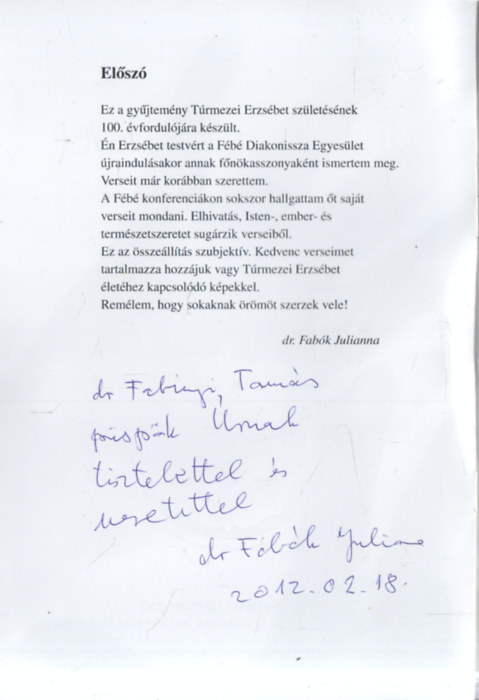 Előszó
Ez a gyűjtemény Túrmezei Erzsébet születésének
100. évfordulójára készült.
Én Erzsébet testvért a Fébé Diakonissza Egyesület
újraindulásakor annak főnökasszonyaként ismertem meg.
Verseit már korábban szerettem.
A Fébé konferenciákon sokszor hallgattam őt saját
verseit mondani. Elhivatás, Isten-, ember- és
természetszeretet sugárzik verseiből.
Ez az összeállítás szubjektív. Kedvenc verseimet
tartalmazza hozzájuk vagy Túrmezei Erzsébet
életéhez kapcsolódó képekkel.
Remélem, hogy sokaknak örömöt szerzek vele!
dr. Fabók Julianna
dr Fabinyi Tamás
püspök Úrnak
tisztelettel és
szeretettel
dr Fabók Julianna
2012.02.18.